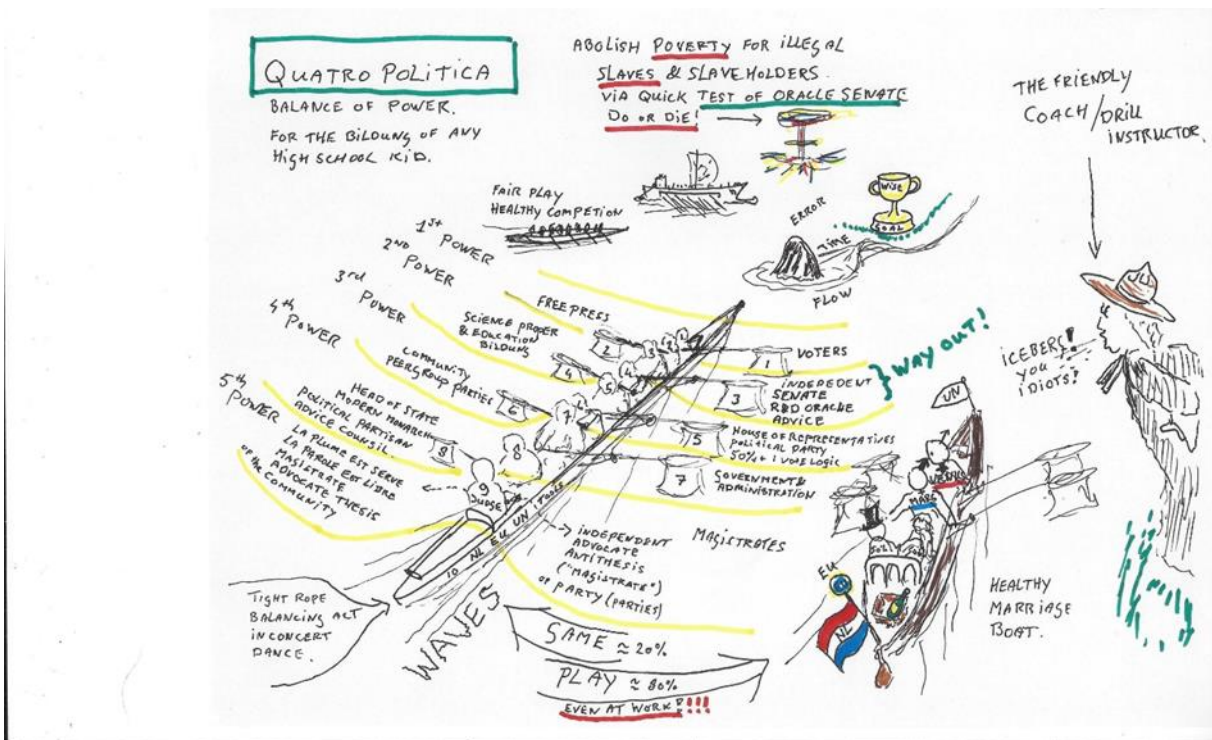 QUATRO POLITICA
BALANCE OF POWER.
FOR THE BILDUNG OF ANY
HIGH SCHOOL KID.
ABOLISH POVERTY FOR ILLEGAL
SLAVES & SLAVEHOLDERS.
VIA QUICK TEST OF ORACLE SENATE
DO OR DIE!
THE FRIENDLY
COACH/DRILL
INSTRUCTOR.
FAIR PLAY
HEALTHY COMPETION
WISE
GOAL
ERROR
TIME
FLOW
1st POWER
2ND POWER
3rd POWER
4th POWER
5th POWER
FREE PRESS
2
SCIENCE PROPER
& EDUCATION
BILDUNG
4
COMMUNITY
PEERGROUP PARTIES
6
HEAD OF STATE
MODERN MONARCH
POLITICAL PARTISAN
ADVICE COUNSIL.
8
LA PLUME EST SERVE
LA PAROLE EST LIBRE
MAGISTRATE
ADVOCATE THESIS
OF THE COMMUNITY
1
VOTERS
3
INDEPEDENT
SENATE
R&D ORACLE
ADVICE
} WAY OUT!
5
HOUSE OF REPRESENTATIVES
POLITICAL PARTY
50% + 1 VOTE LOGIC
7
GOVERNMENT &
ADMINISTRATION
3
4
5
7
8
9
JUDGE
10 NL EU UN
INDEPENDENT
ADVOCATE
ANTITHESIS
("MAGISTRATE")
OF PARTY (PARTIES)
MAGISTRATES
ICEBERG!
YOU
IDIOTS!
UN
VENUS
MARS
EU
NL
HEALTHY
MARRIAGE
BOAT.
TIGHT ROPE
BALANCING ACT
IN CONCERT
DANCE.
WAVES
SAME ≈ 20%
PLAY ≈ 80%
EVEN AT WORK!!!!